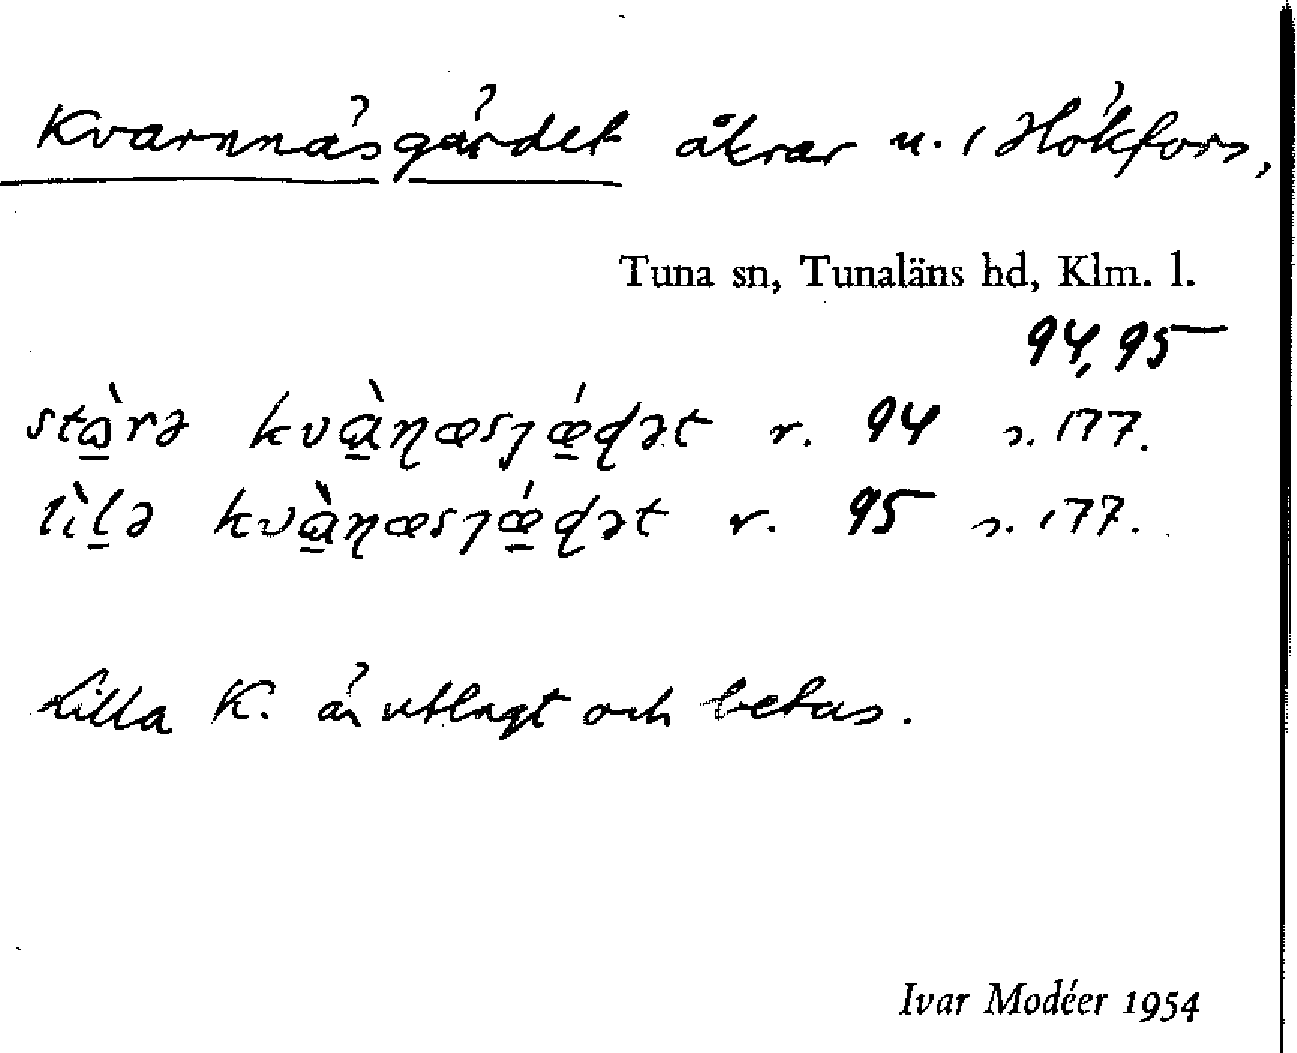 Kvarnnäsgärdet åkrar u. 1 Hökfors,
Tuna sn, Tunaläns hd, Klm. l.
94, 95
stὰ̱rə kvὰ̱ɳæsɟǽ̱ɖət r. 94 s. 177.
lìḻə kvὰ̱ɳæsɟǽ̱ɖət r. 95 s. 177.
Lilla K. är utlagt och betas.
Ivar Modéer 1954